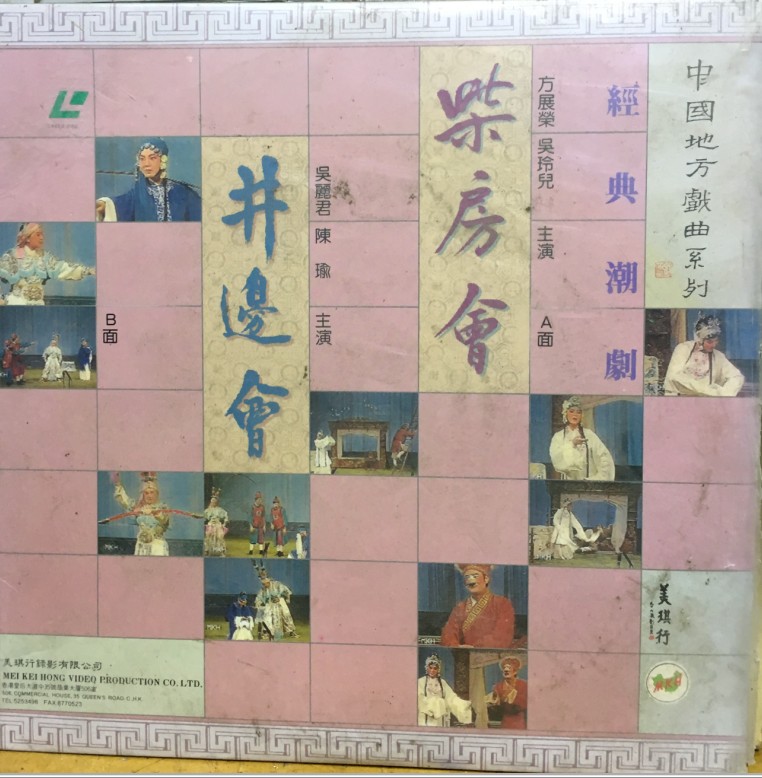 中國地方戲曲系列
經典潮劇
方展榮 吳玲兒 主演 A面
柴房會
吳麗君 陳瑜 主演
井邊會
B面
美琪行
美琪行錄影有限公司
MEI KEI HONG VIDEO PRODUCTION CO. LTD.
506, COMMERCIAL HOUSE, 35 QUEEN'S ROAD C.H.K.
TEL:5253496 FAX:8770523